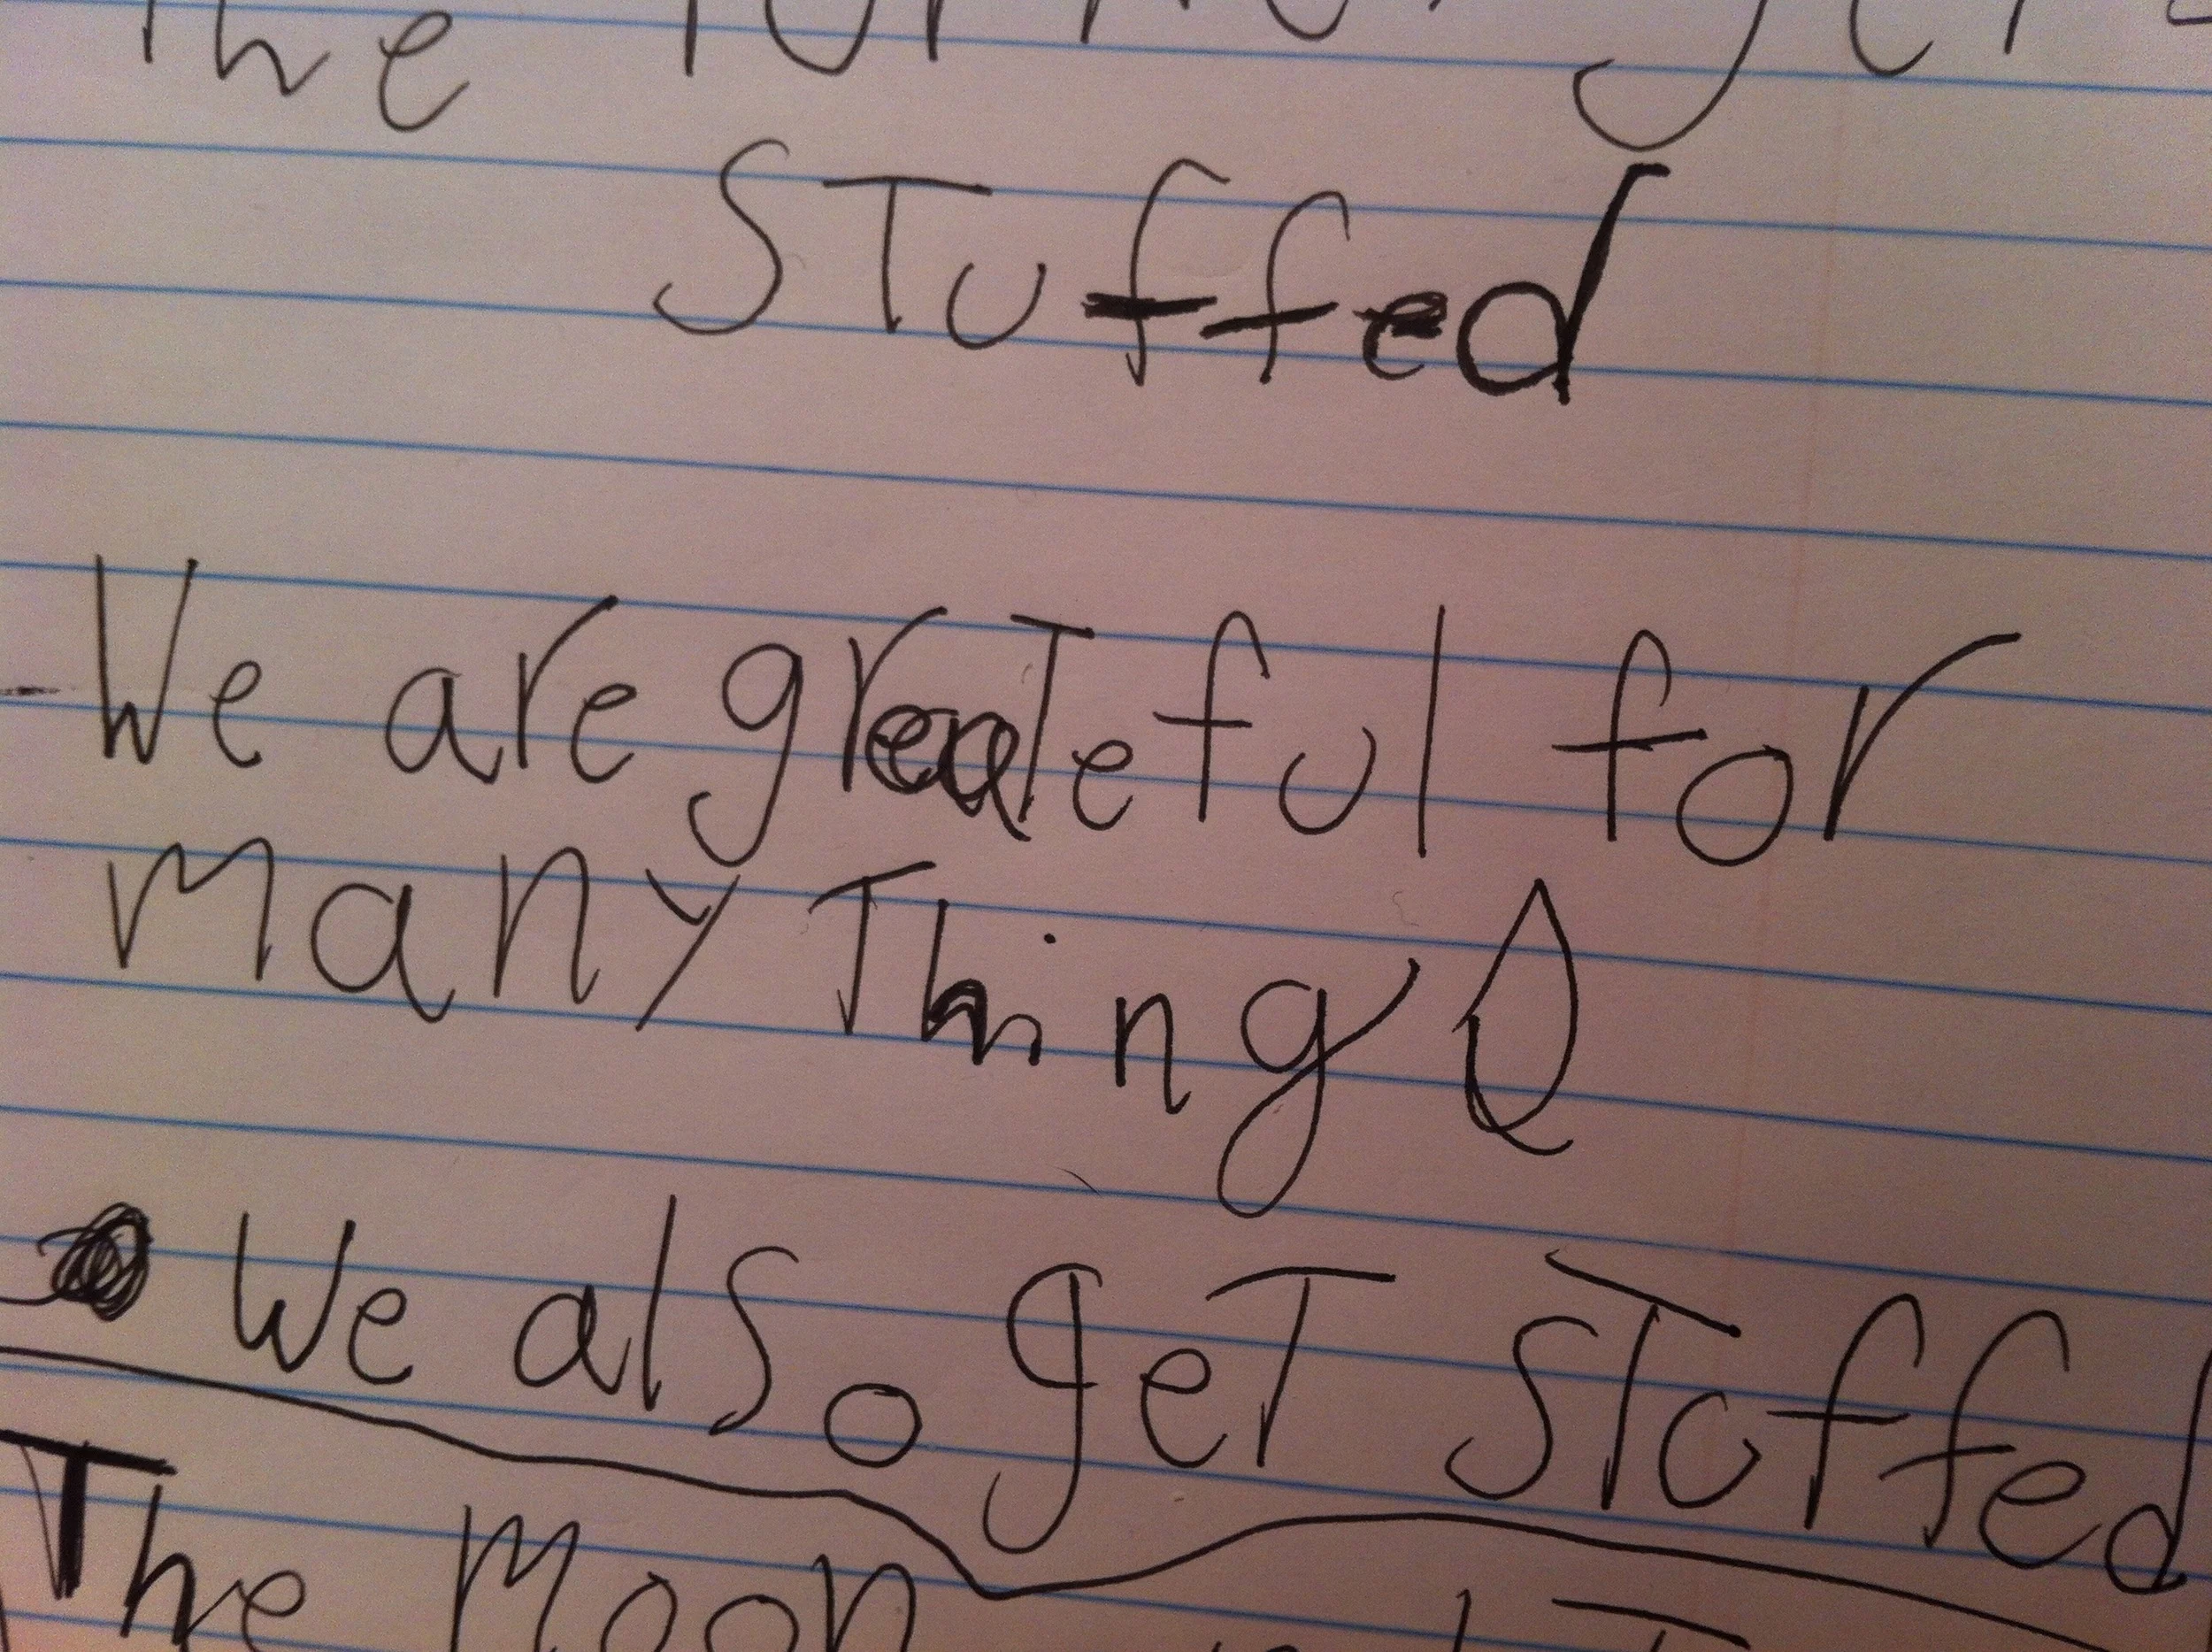 The
STuffed
We are greaTeful for
many Things
We also geT STuffed
The Moon